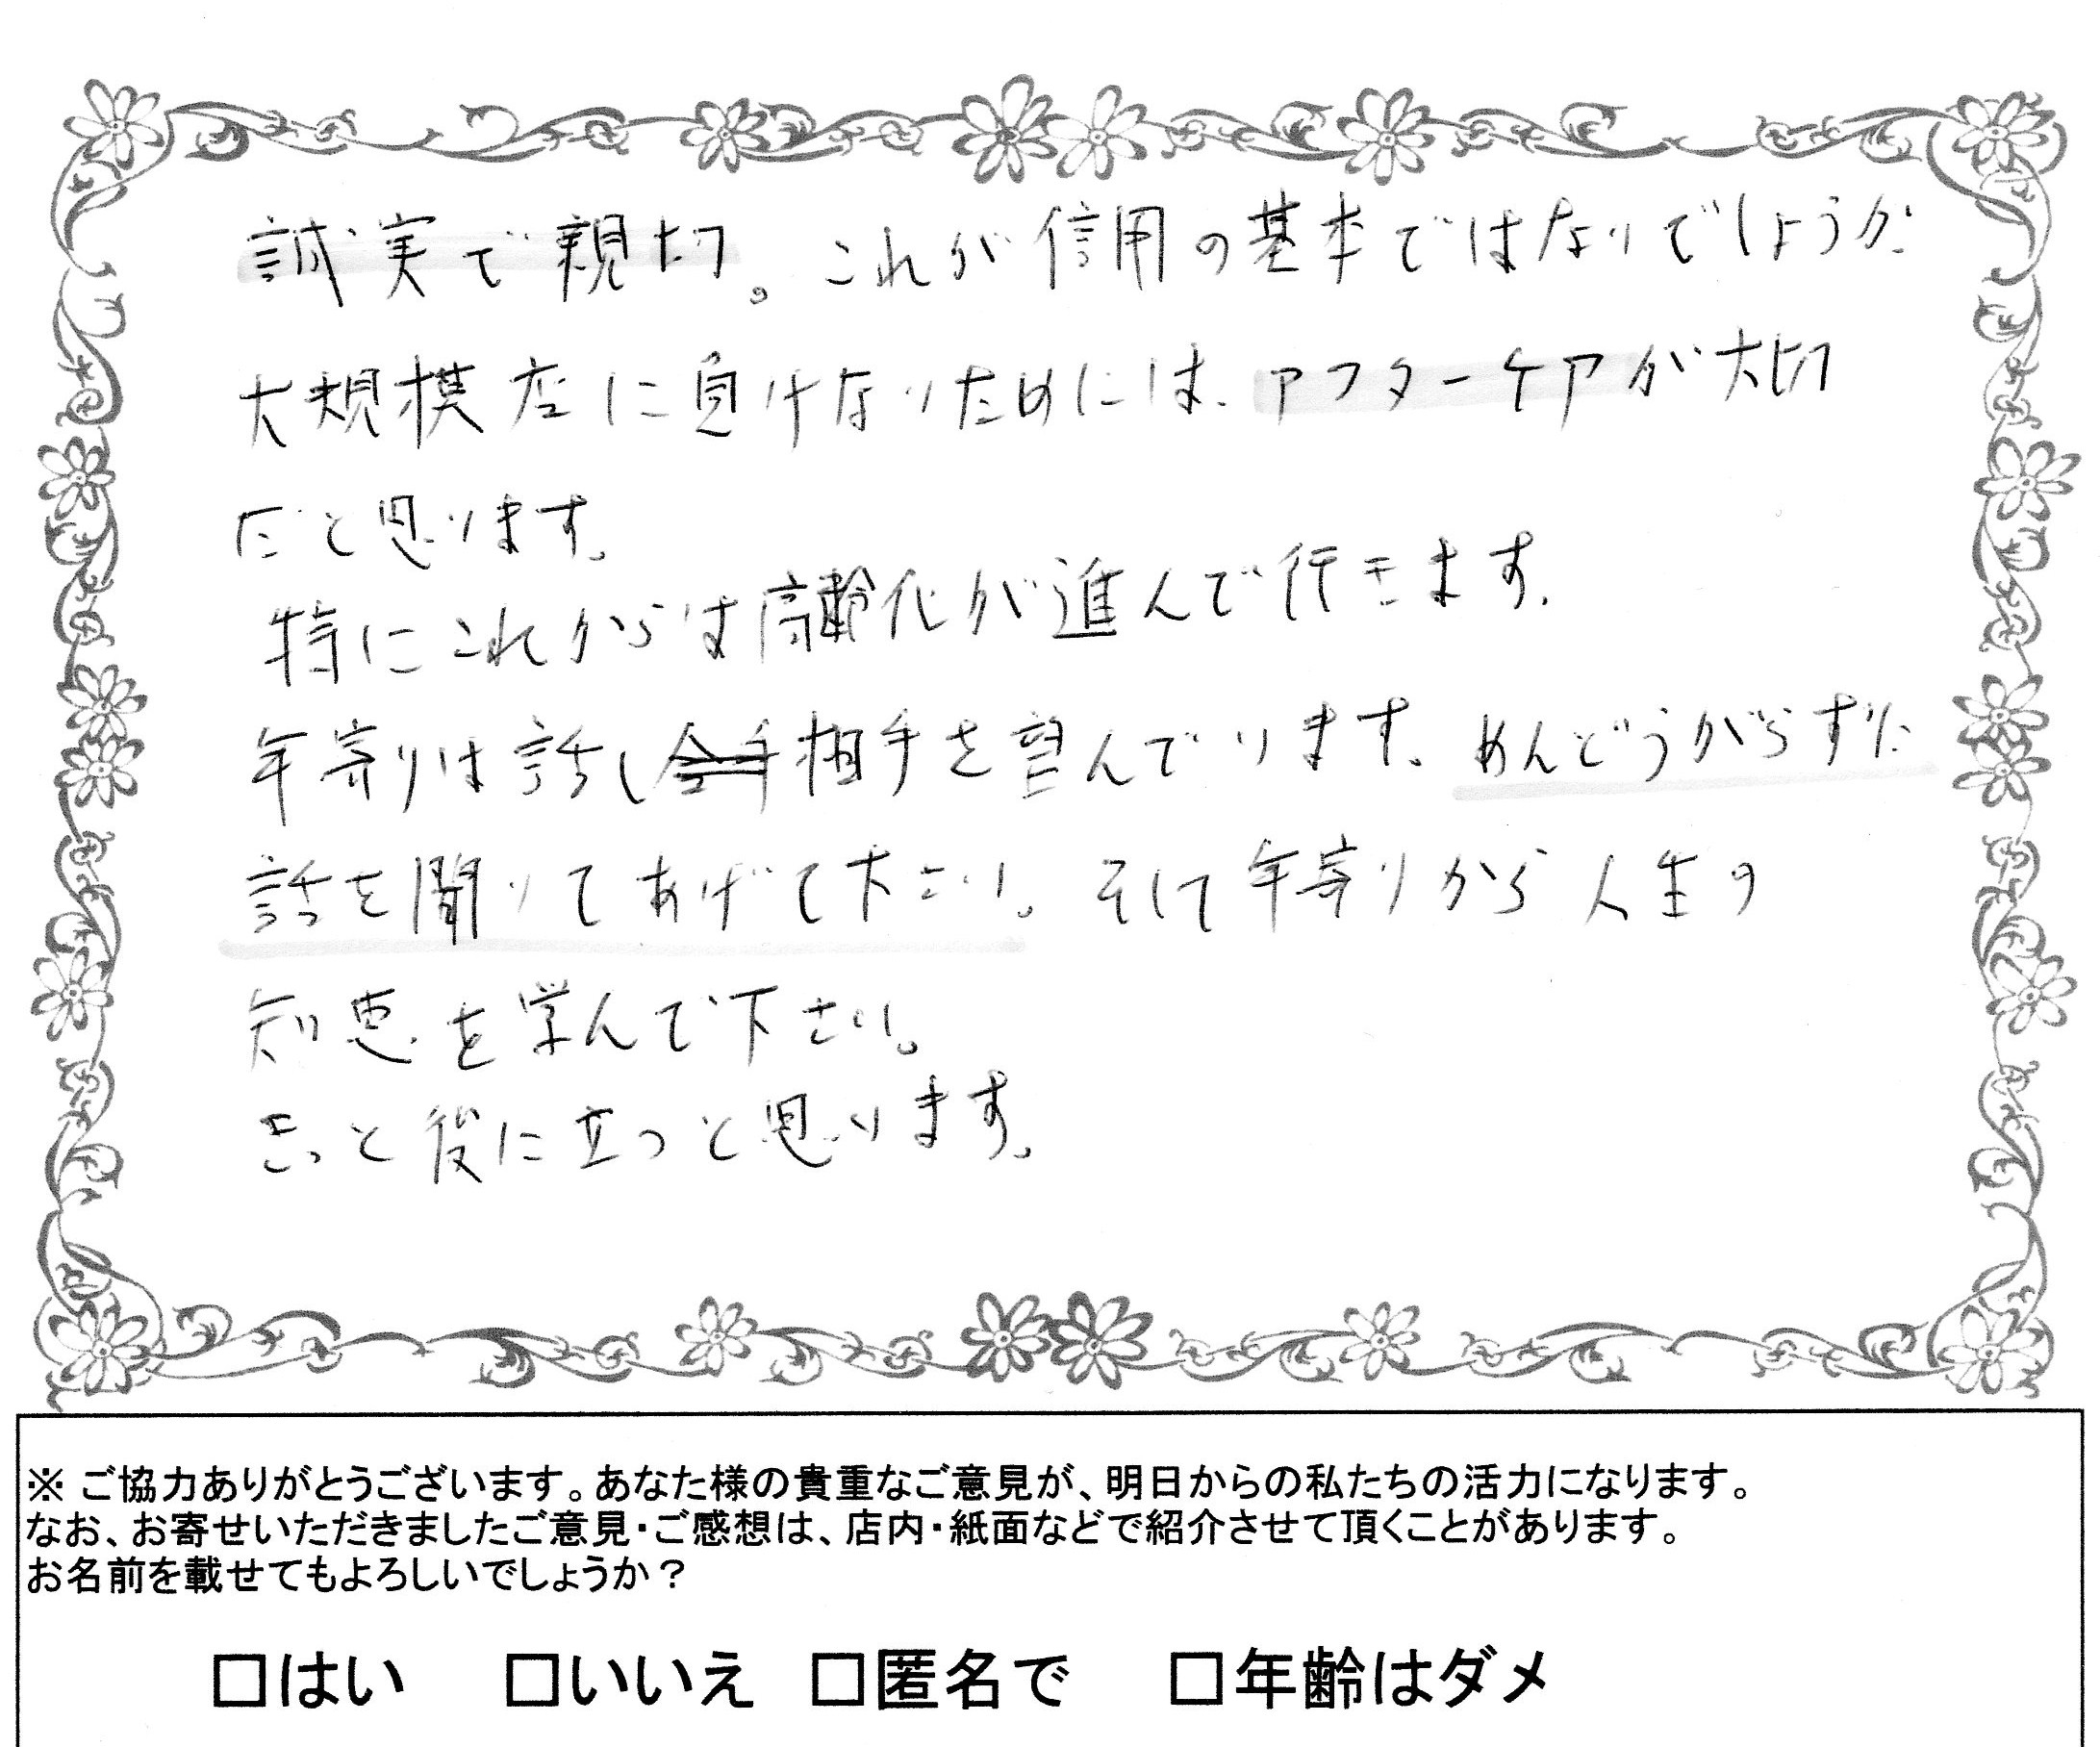 誠実で親切。これが信用の基本ではないでしょうか
大規模店に負けないためには、アフターケアが大切
だと思います。
特にこれからは高齢化が進んで行きます。
年寄りは話し相手を望んでいます。めんどうがらずに
話を聞いてあげて下さい。そして年寄りから人生の
知恵を学んで下さい。
きっと役に立つと思います。
※ ご協力ありがとうございます。あなた様の貴重なご意見が、明日からの私たちの活力になります。
なお、お寄せいただきましたご意見・ご感想は、店内・紙面などで紹介させて頂くことがあります。
お名前を載せてもよろしいでしょうか？
□はい □いいえ □匿名で □年齢はダメ